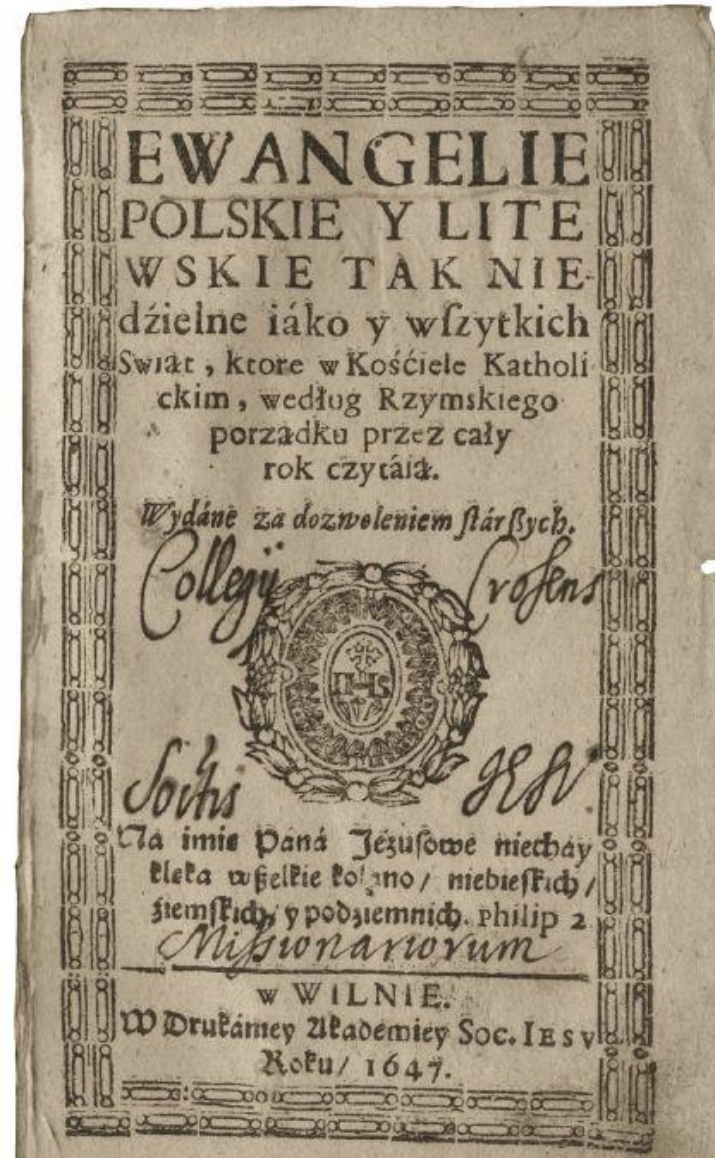 EWANGELIE
POLSKIE Y LITE
WSKIE TAK NIE-
dźielne iáko y wſzytkich
Swiąt, ktore w Kośćiele Katholi
ckim, według Rzymskiego
porządku przez cały
rok czytáią.
Wydáne za dozwoleniem ſtárſzych.
Collegij Crosens
IHS
Socitis JESV.
Na imie Paná Jezuſowe niechay
klęka wßelkie kolano/ niebieſkich/
źiemſkich, y podziemnich. Philip 2
Missionariorum
w WILNIE.
W Drukárney Akademiey Soc. IESV
Roku/ 1647.